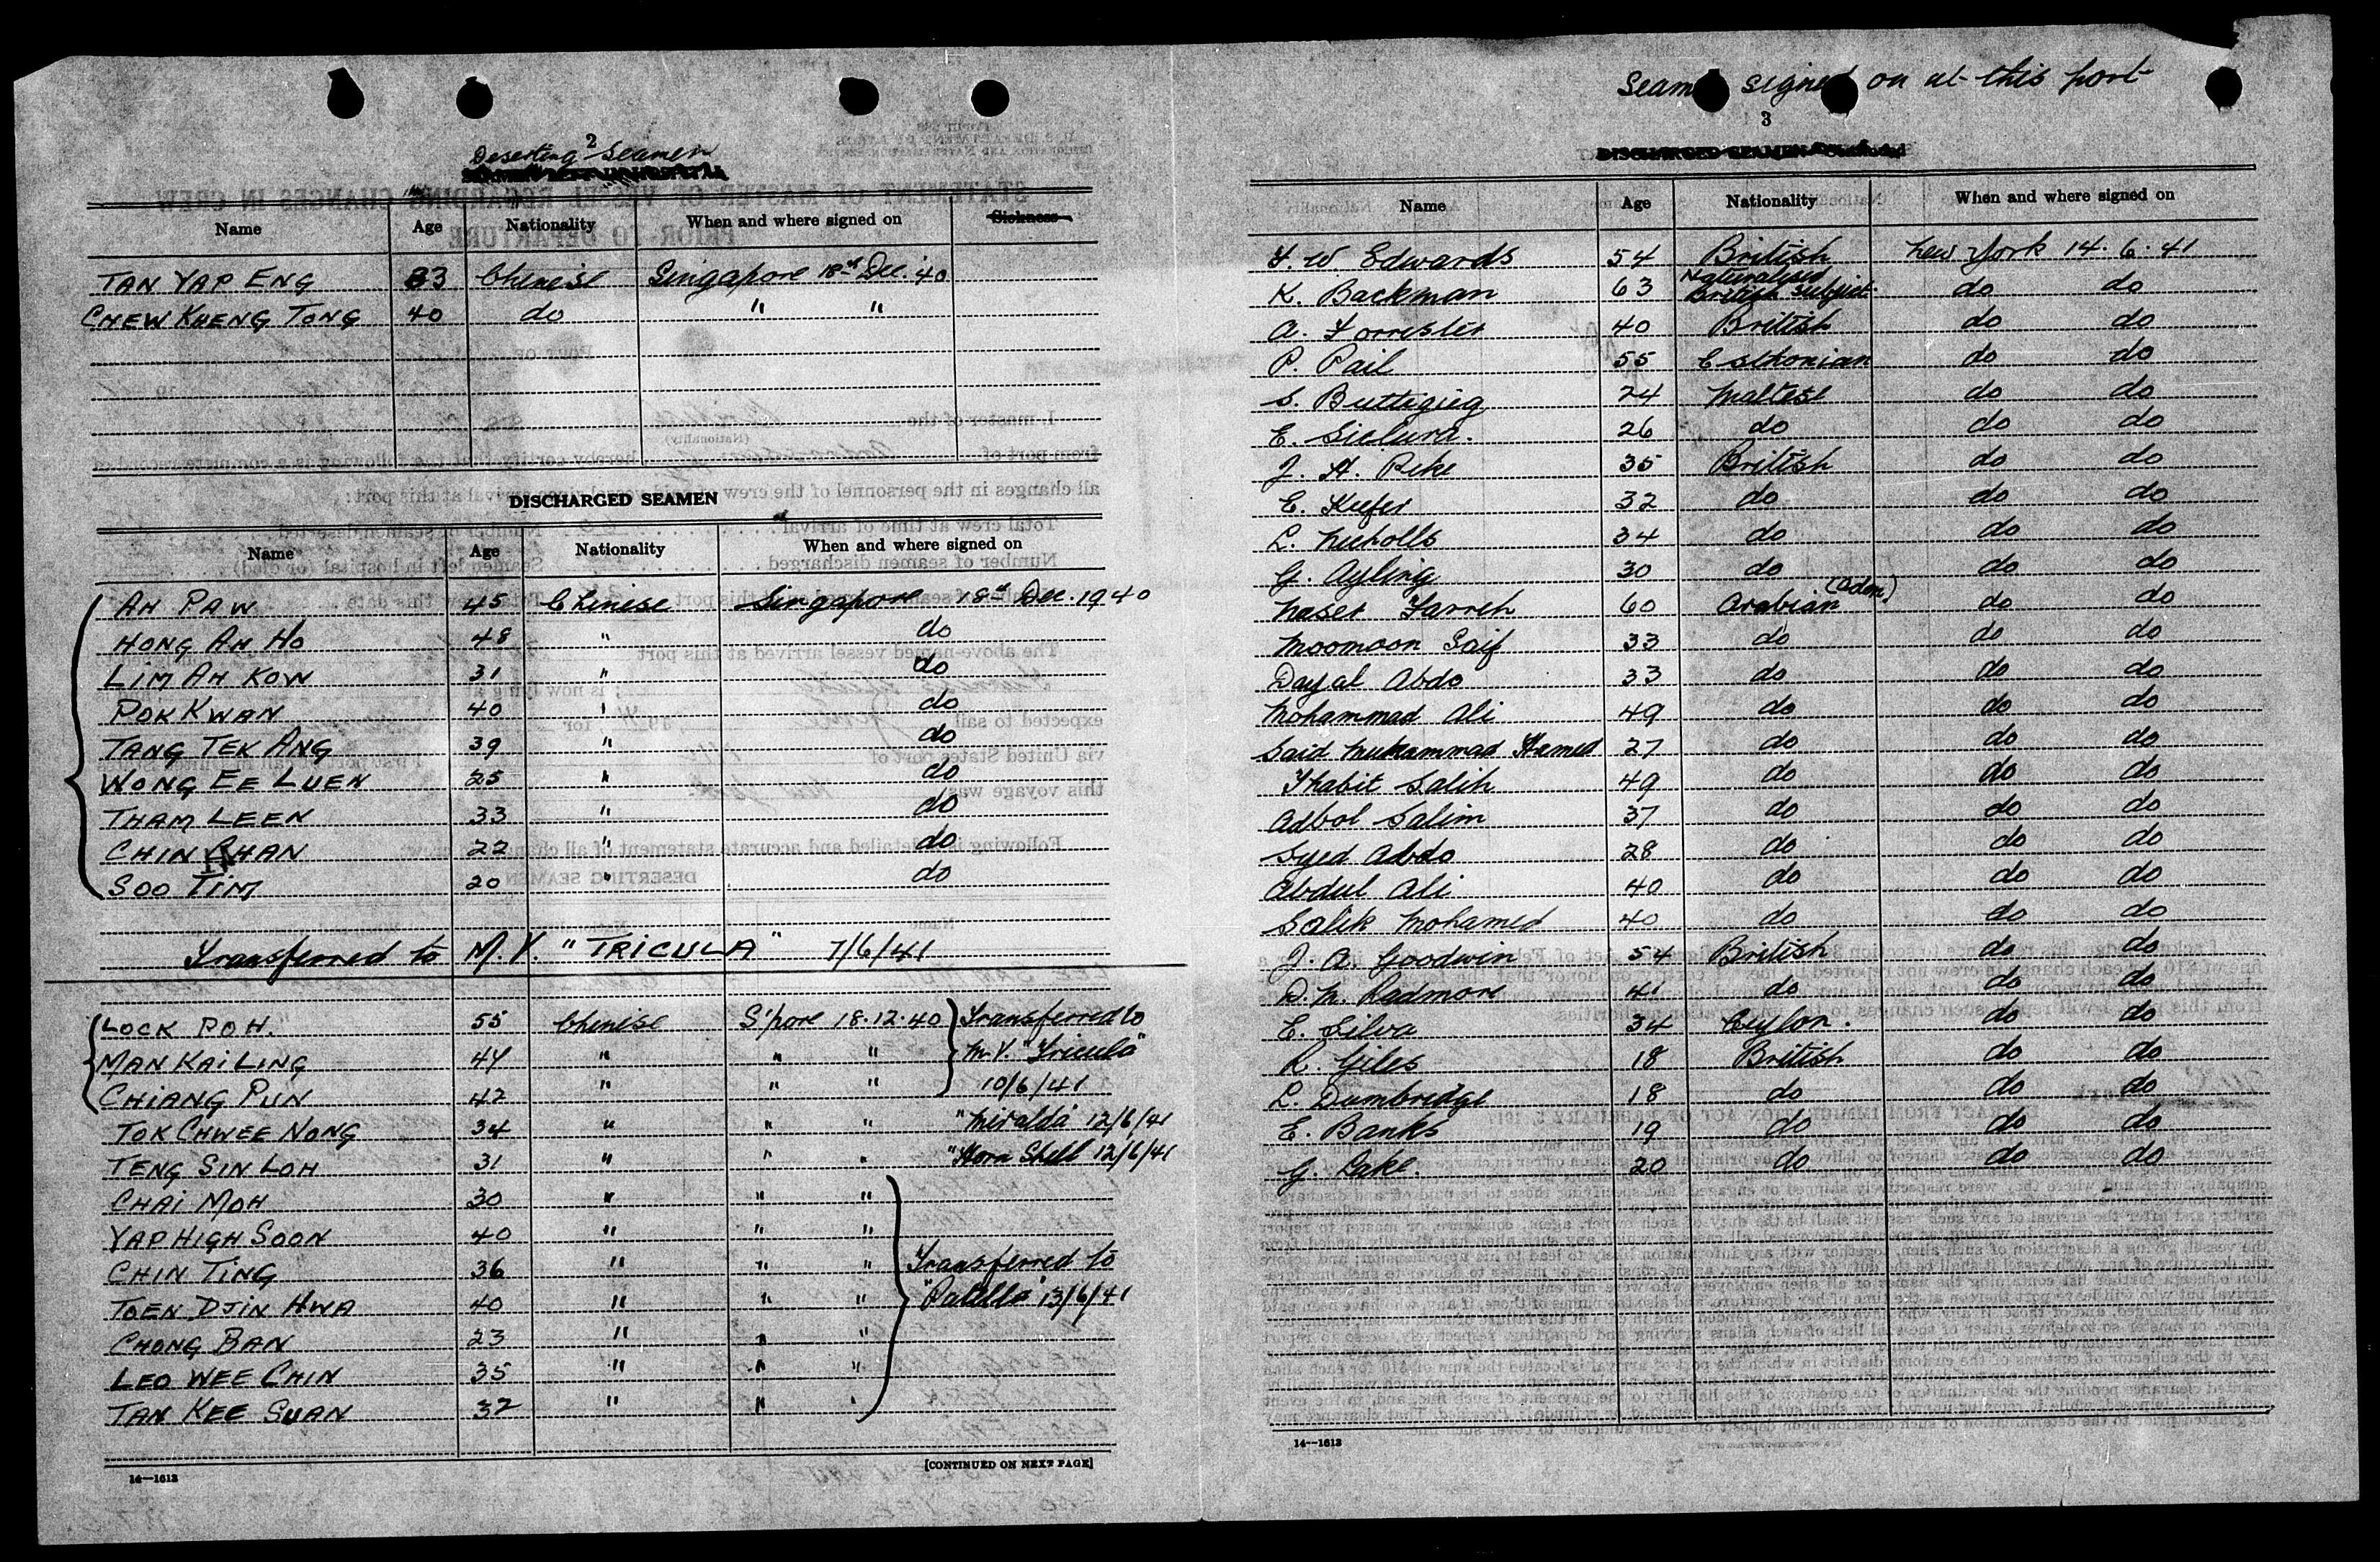 2
Deserting Seamen
Name Age Nationality When and where signed on Sickness
TAN YAP ENG 33 Chinese Singapore 18th Dec. '40
CHEW KHENG TONG 40 do " "
DISCHARGED SEAMEN
Name Age Nationality When and where signed on
AH PAW 45 Chinese Singapore 18th Dec. 1940
HONG AH HO 48 " do
LIM AH KOW 31 " do
POK KWAN 40 " do
TANG TEK ANG 39 " do
WONG EE LUEN 25 " do
THAM LEEN 33 " do
CHIN CHAN 22 " do
SOO TIM 20 " do
Transferred to M.V. "TRICULA" 7/6/41
LOCK POH. 55 Chinese S'pore 18.12.40 Transferred to
MAN KAI LING 44 " " " M.V. "Tricula"
CHIANG PUN 42 " " " 10/6/41
TOK CHWEE NONG 34 " " " "Miralda" 12/6/41
TENG SIN LOH 31 " " " "Horn Shell" 12/6/41
CHAI MOH 30 " " "
YAP HIGH SOON 40 " " "
CHIN TING 36 " " " Transferred to
TOEN DJIN HWA 40 " " " "Patella" 13/6/41
CHONG BAN 23 " " "
LEO WEE CHIN 35 " " "
TAN KEE SUAN 32 " " "
14—1613
[CONTINUED ON NEXT PAGE]
Seamen signed on at this port
3
DISCHARGED SEAMEN—Continued
Name Age Nationality When and where signed on
F. W. Edwards 54 British New York 14.6.41
K. Backman 63 Naturalised British Subject. do do
A. Forrester 40 British do do
P. Pail 55 Esthonian do do
S. Buttigieg 24 Maltese do do
E. Sicluna. 26 do do do
J. H. Peke 35 British do do
E. Keefer 32 do do do
L. Nicholls 34 do do do
G. Ayling 30 do do do
Naser Farreh 60 Arabian (Aden) do do
Moomoon Saif 33 do do do
Dayal Abdo 33 do do do
Mohammad Ali 49 do do do
Said Muhammad Hamed 27 do do do
Thabit Salih 49 do do do
Adbol Salim 37 do do do
Syed Abdo 28 do do do
Abdul Ali 40 do do do
Salih Mohamed 40 do do do
J. A. Goodwin 54 British do do
D. M. Redmore 41 do do do
E. Silva 34 Ceylon. do do
R. Giles 18 British do do
L. Dumbridge 18 do do do
E. Banks 19 do do do
G. Lake. 20 do do do
14—1613